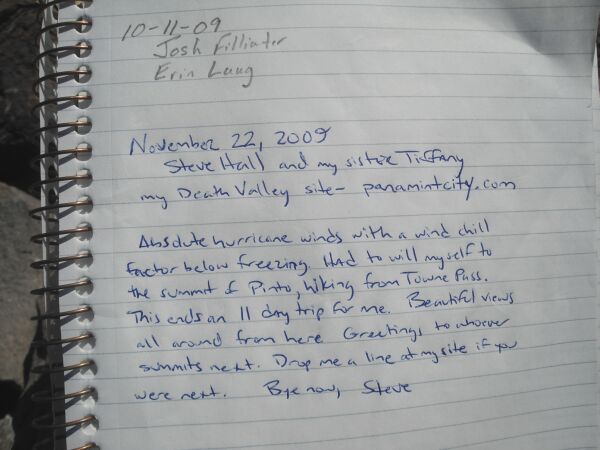 10-11-09
Josh Filliater
Erin Laug
November 22, 2009
Steve Hall and my sister Tiffany
my Death Valley site- panamintcity.com
Absolute hurricane winds with a wind chill
factor below freezing. Had to will myself to
the summit of Pinto, hiking from Towne Pass.
This ends an 11 day trip for me. Beautiful views
all around from here. Greetings to whoever
summits next. Drop me a line at my site if you
were next. Bye now, Steve